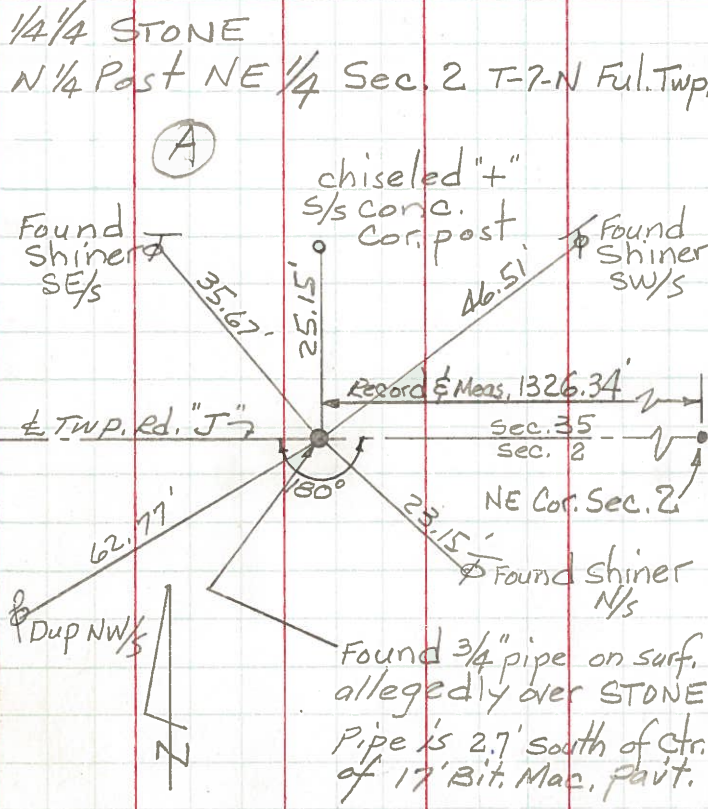 1/4 1/4 STONE
N 1/4 Post NE 1/4 Sec. 2 T-7-N Ful. Twp.
A
chiseled "+"
s/s conc.
Cor. post
Found
Shiner
SE/s
Found
Shiner
SW/s
35.67'
25.15'
46.51'
Record & Meas. 1326.34'
℄ Twp. Rd. "J"
Sec. 35
Sec. 2
180°
NE Cor. Sec. 2
62.77'
23.15'
Found Shiner
N/s
Dup NW/s
Found 3/4" pipe on surf.
allegedly over STONE
Pipe is 2.7' South of Ctr.
of 17' Bit. Mac. pav't.
N